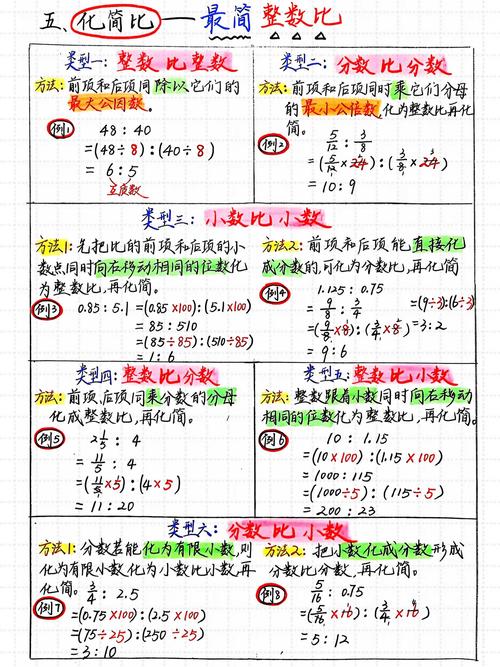 五、化简比——最简整数比
类型一：整数比整数
方法：前项和后项同除以它们的
最大公因数。
例1 48：40
=(48÷8)：(40÷8)
= 6：5
互质数
类型二：分数比分数
方法：前项和后项同时乘它们分母
的最小公倍数，化为整数比再化
简。
例2 5/12：3/8
=(5/12×24)：(3/8×24)
=10：9
类型三：小数比小数
方法1：先把比的前项和后项的小
数点同时向右移动相同的位数化
为整数比，再化简。
例3 0.85：5.1=(0.85×100)：(5.1×100)
=85：510
=(85÷85)：(510÷85)
=1：6
方法2：前项和后项能直接化
成分数的，可化为分数比，再化简
例4 1.125：0.75
=9/8：3/4
=(9/8×8)：(3/4×8)
=9：6
=(9÷3)：(6÷3)
=3：2
类型四：整数比分数
方法：前项、后项同乘分数的分母
化成整数比，再化简。
例5 2 1/5：4
=11/5：4
=(11/5×5)：(4×5)
=11：20
类型五：整数比小数
方法：整数跟着小数同时向右移动
相同的位数化为整数比，再化简。
例6 10：1.15
=(10×100)：(1.15×100)
=1000：115
=(1000÷5)：(115÷5)
=200：23
类型六：分数比小数
方法1：分数若能化为有限小数，则
化为有限小数化为小数比小数，再
化简。 3/4：2.5
例7 =(0.75×100)：(2.5×100)
=(75÷25)：(250÷25)
=3：10
方法2：把小数化成分数形成
分数比分数，再化简。
例8 5/16：0.75
=(5/16×16)：(3/4×16)
=5：12